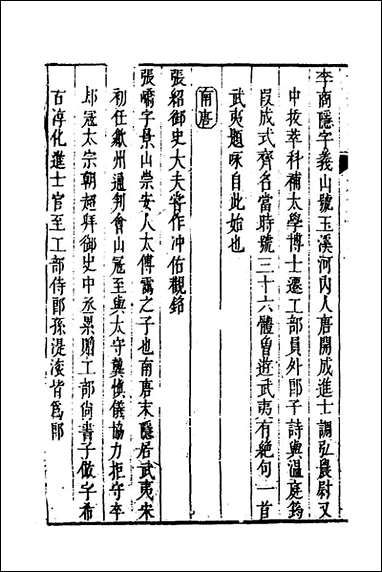 李商隱字義山號玉溪河內人唐開成進士調弘農尉又
中拔萃科補太學博士遷工部員外郎子詩與溫庭筠
段成式齊名當時號三十六體曾遊武夷有絕句一首
武夷題咏自此始也
南唐
張紹御史大夫嘗作冲佑觀銘
張嶠字景山崇安人太傅靄之子也南唐末隱居武夷宋
初任歙州通判會山冦至與太守龔慎儀協力拒守卒
却冦太宗朝超拜御史中丞累贈工部尚書子倣字希
古淳化進士官至工部侍郎孫湜浚皆爲郎